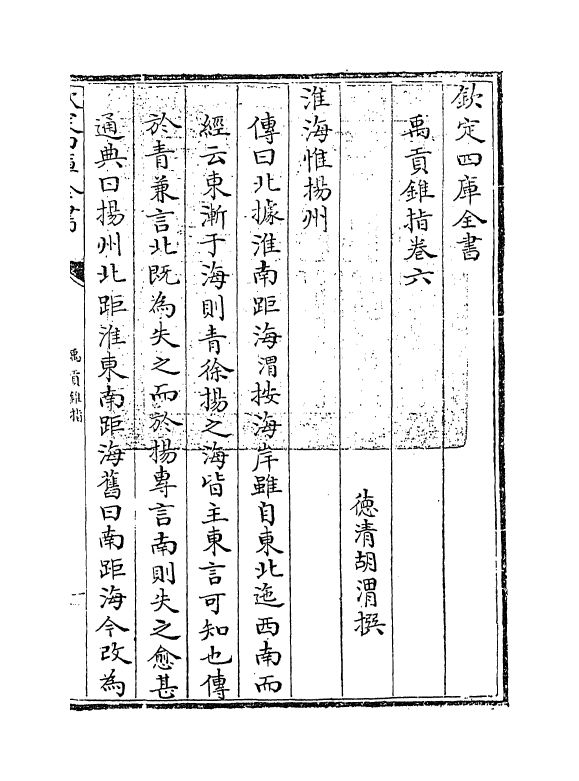 欽定四庫全書
禹貢錐指卷六
德清胡渭撰
淮海惟揚州
傳曰北據淮南距海渭按海岸雖自東北迤西南而
經云東漸于海則青徐揚之海皆主東言可知也傳
於青兼言北既為失之而於揚專言南則失之愈甚
通典曰揚州北距淮東南距海舊曰南距海今改為
欽定四庫全書
禹貢錐指
一